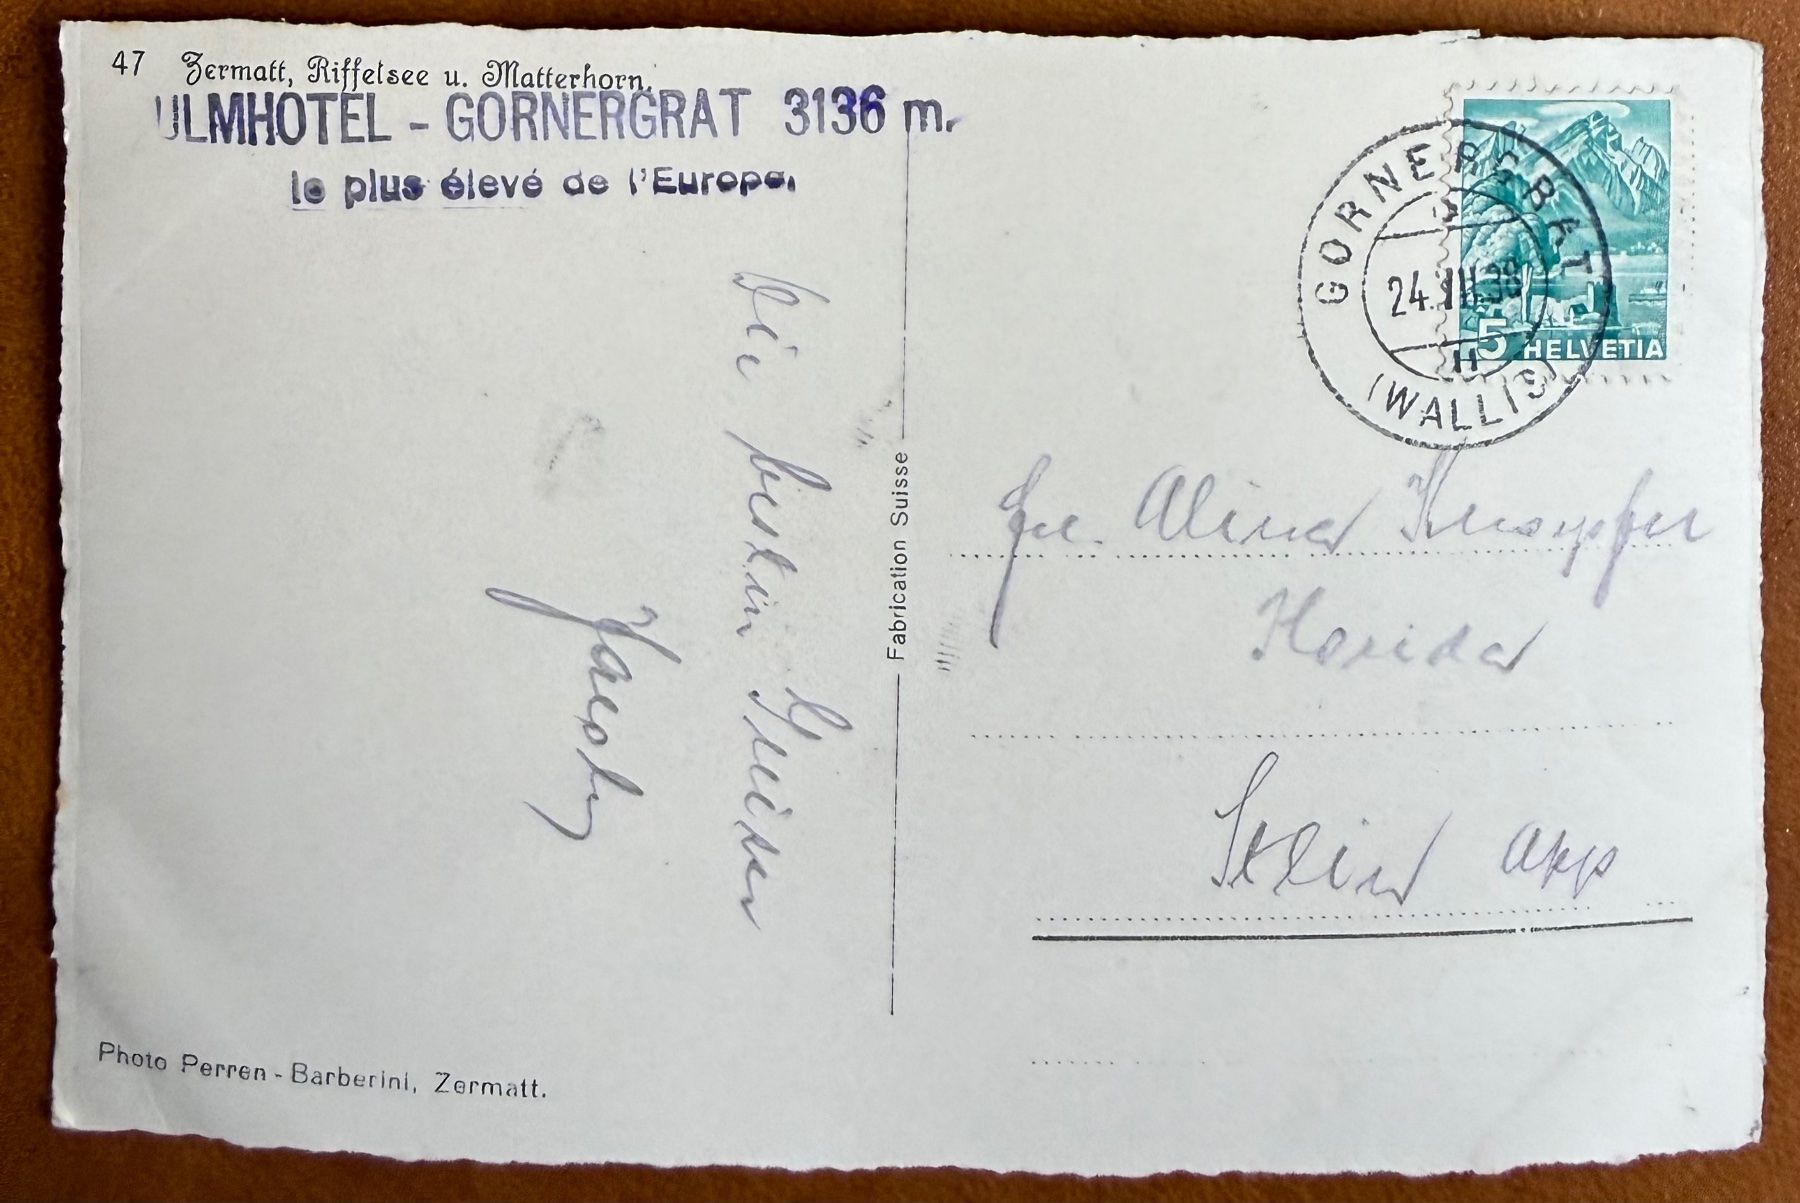 47 Zermatt, Riffelsee u. Matterhorn.
ULMHOTEL - GORNERGRAT 3136 m.
le plus élevé de l'Europe.
GORNERGRAT
24. 38
(WALLIS)
5 HELVETIA
Die besten Grüsse
Fabrication Suisse
Alina Knöpfel
Stein App
Photo Perren - Barberini, Zermatt.